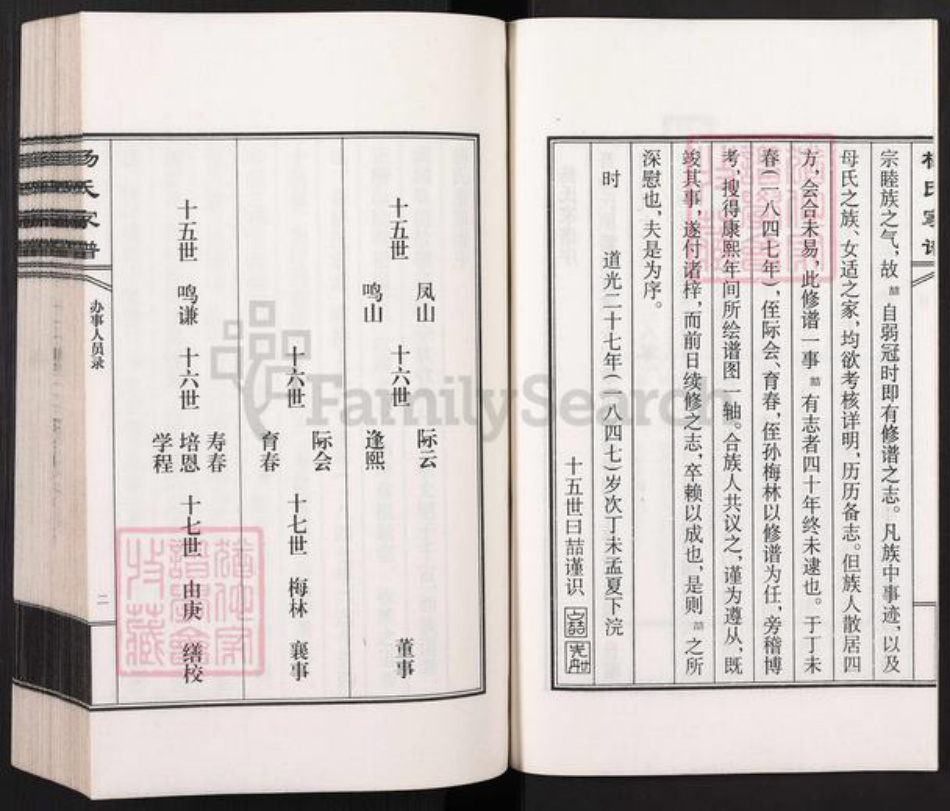 宗睦族之气，故喆自弱冠时即有修谱之志。凡族中事迹，以及
母氏之族、女适之家，均欲考核详明，历历备志。但族人散居四
方，会合未易，此修谱一事喆有志者四十年终未逮也。于丁未
春（一八四七年），侄际会、育春，侄孙梅林以修谱为任，旁稽博
考，搜得康熙年间所绘谱图一轴。合族人共议之，谨为遵从，既
竣其事，遂付诸梓，而前日续修之志，卒赖以成也，是则喆之所
深慰也，夫是为序。
时 道光二十七年（一八四七）岁次丁未孟夏下浣
十五世曰喆谨识
凤山 际云
十五世 十六世 董事
鸣山 逢熙
际会
十六世 十七世 梅林 襄事
育春
寿春
十五世 鸣谦 十六世 培恩 十七世 由庚 缮校
学程
杨氏家谱
办事人员录
二
FamilySearch